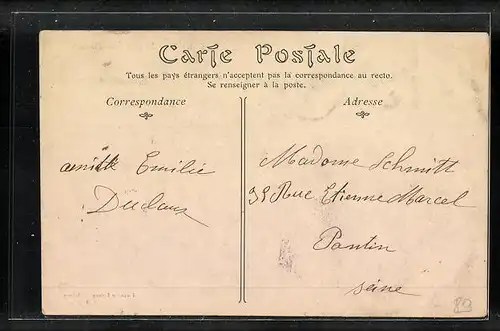 Carte Postale
Tous les pays étrangers n'acceptent pas la correspondance au recto.
Se renseigner à la poste.
Correspondance
Adresse
Emilie
Madame Schmitt
Rue Etienne Marcel
Pantin
Seine